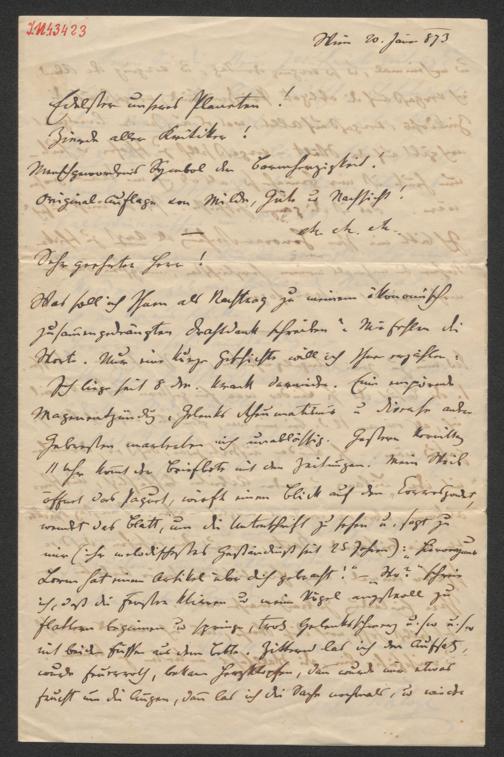 IN 43423
Wien 20. Jänn 873
Edelster unseres Planeten!
Zierde aller Kritiker!
Menschgewordnes Symbol der Barmherzigkeit.
Original-Auflage von Milde, Güte u Nachsicht!
etc. etc. etc.
Sehr geehrter Herr!
Was soll ich Ihnen als Nachtrag zu meinem ökonomisch
zusammengedrängten Drahtdank schreiben? Mir fehlen die
Worte. Nur eine kurze Geschichte will ich Ihnen erzählen:
Ich liege seit 8 krank darnieder. Eine
Magenentzündung, Gelenks Rheumatismus u diverse andre
Gebresten marterten mich unablässig. Gestern Vormittag
11 Uhr kommt der Briefbote mit den Zeitungen. Mein Weib
öffnet das Paquet, wirft einen Blick auf den
wendet das Blatt, um die Unterschrift zu sehen u. sagt zu
mir (ihr melodischestes Geständniß seit 25 Jahren): "Hieronymus
Lorm hat einen Artikel über dich gebracht!" – "Wo?" schrie
ich, daß die Fenster klirren u meine Vögel angstvoll zu
flattern beginnen u springe, trotz Gelenkschmerz u.s.w u.s.w
mit beiden Füßen aus dem Bette. Zitternd las ich den Aufsatz,
wurde feuerroth, bekam Herzklopfen, dann wurde mir etwas
feucht um die Augen, dann las ich die Sache nochmals, u wieder